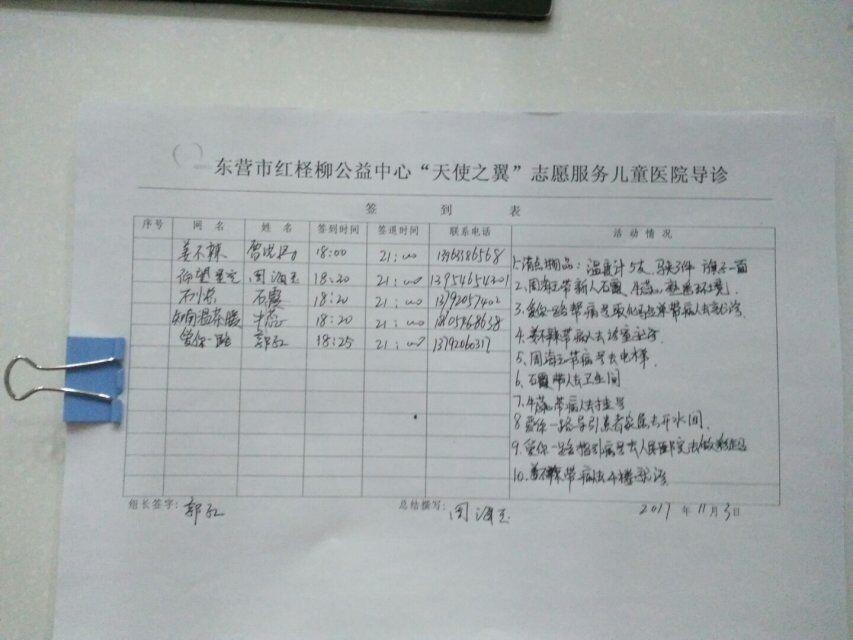 东营市红柽柳公益中心“天使之翼”志愿服务儿童医院导诊
签 到 表
序号 网名 姓名 签到时间 签退时间 联系电话 活动情况
姜不辣 18:00 21:00
仰望星空 周海玉 18:20 21:00 13954654201
石霞 18:20 21:00 13792057402
18:20 21:00
爱你一路 郭红 18:25 21:00
1.清点物品:温度计5支,马夹3件 旗子一面
2.周海玉带新人石霞、牛蕊,熟悉环境.
3.爱你一路帮病号取化验单带病人去
4.姜不辣带病人去
5.周海玉带病号去电梯.
6.石霞带人去卫生间
7.牛蕊带病人去挂号
8.爱你一路导引患者家属去开水间.
9.爱你一路指引病号去人民医院去做
10.姜不辣带病号去
组长签字: 郭红 总结撰写: 周海玉 2017年11月3日